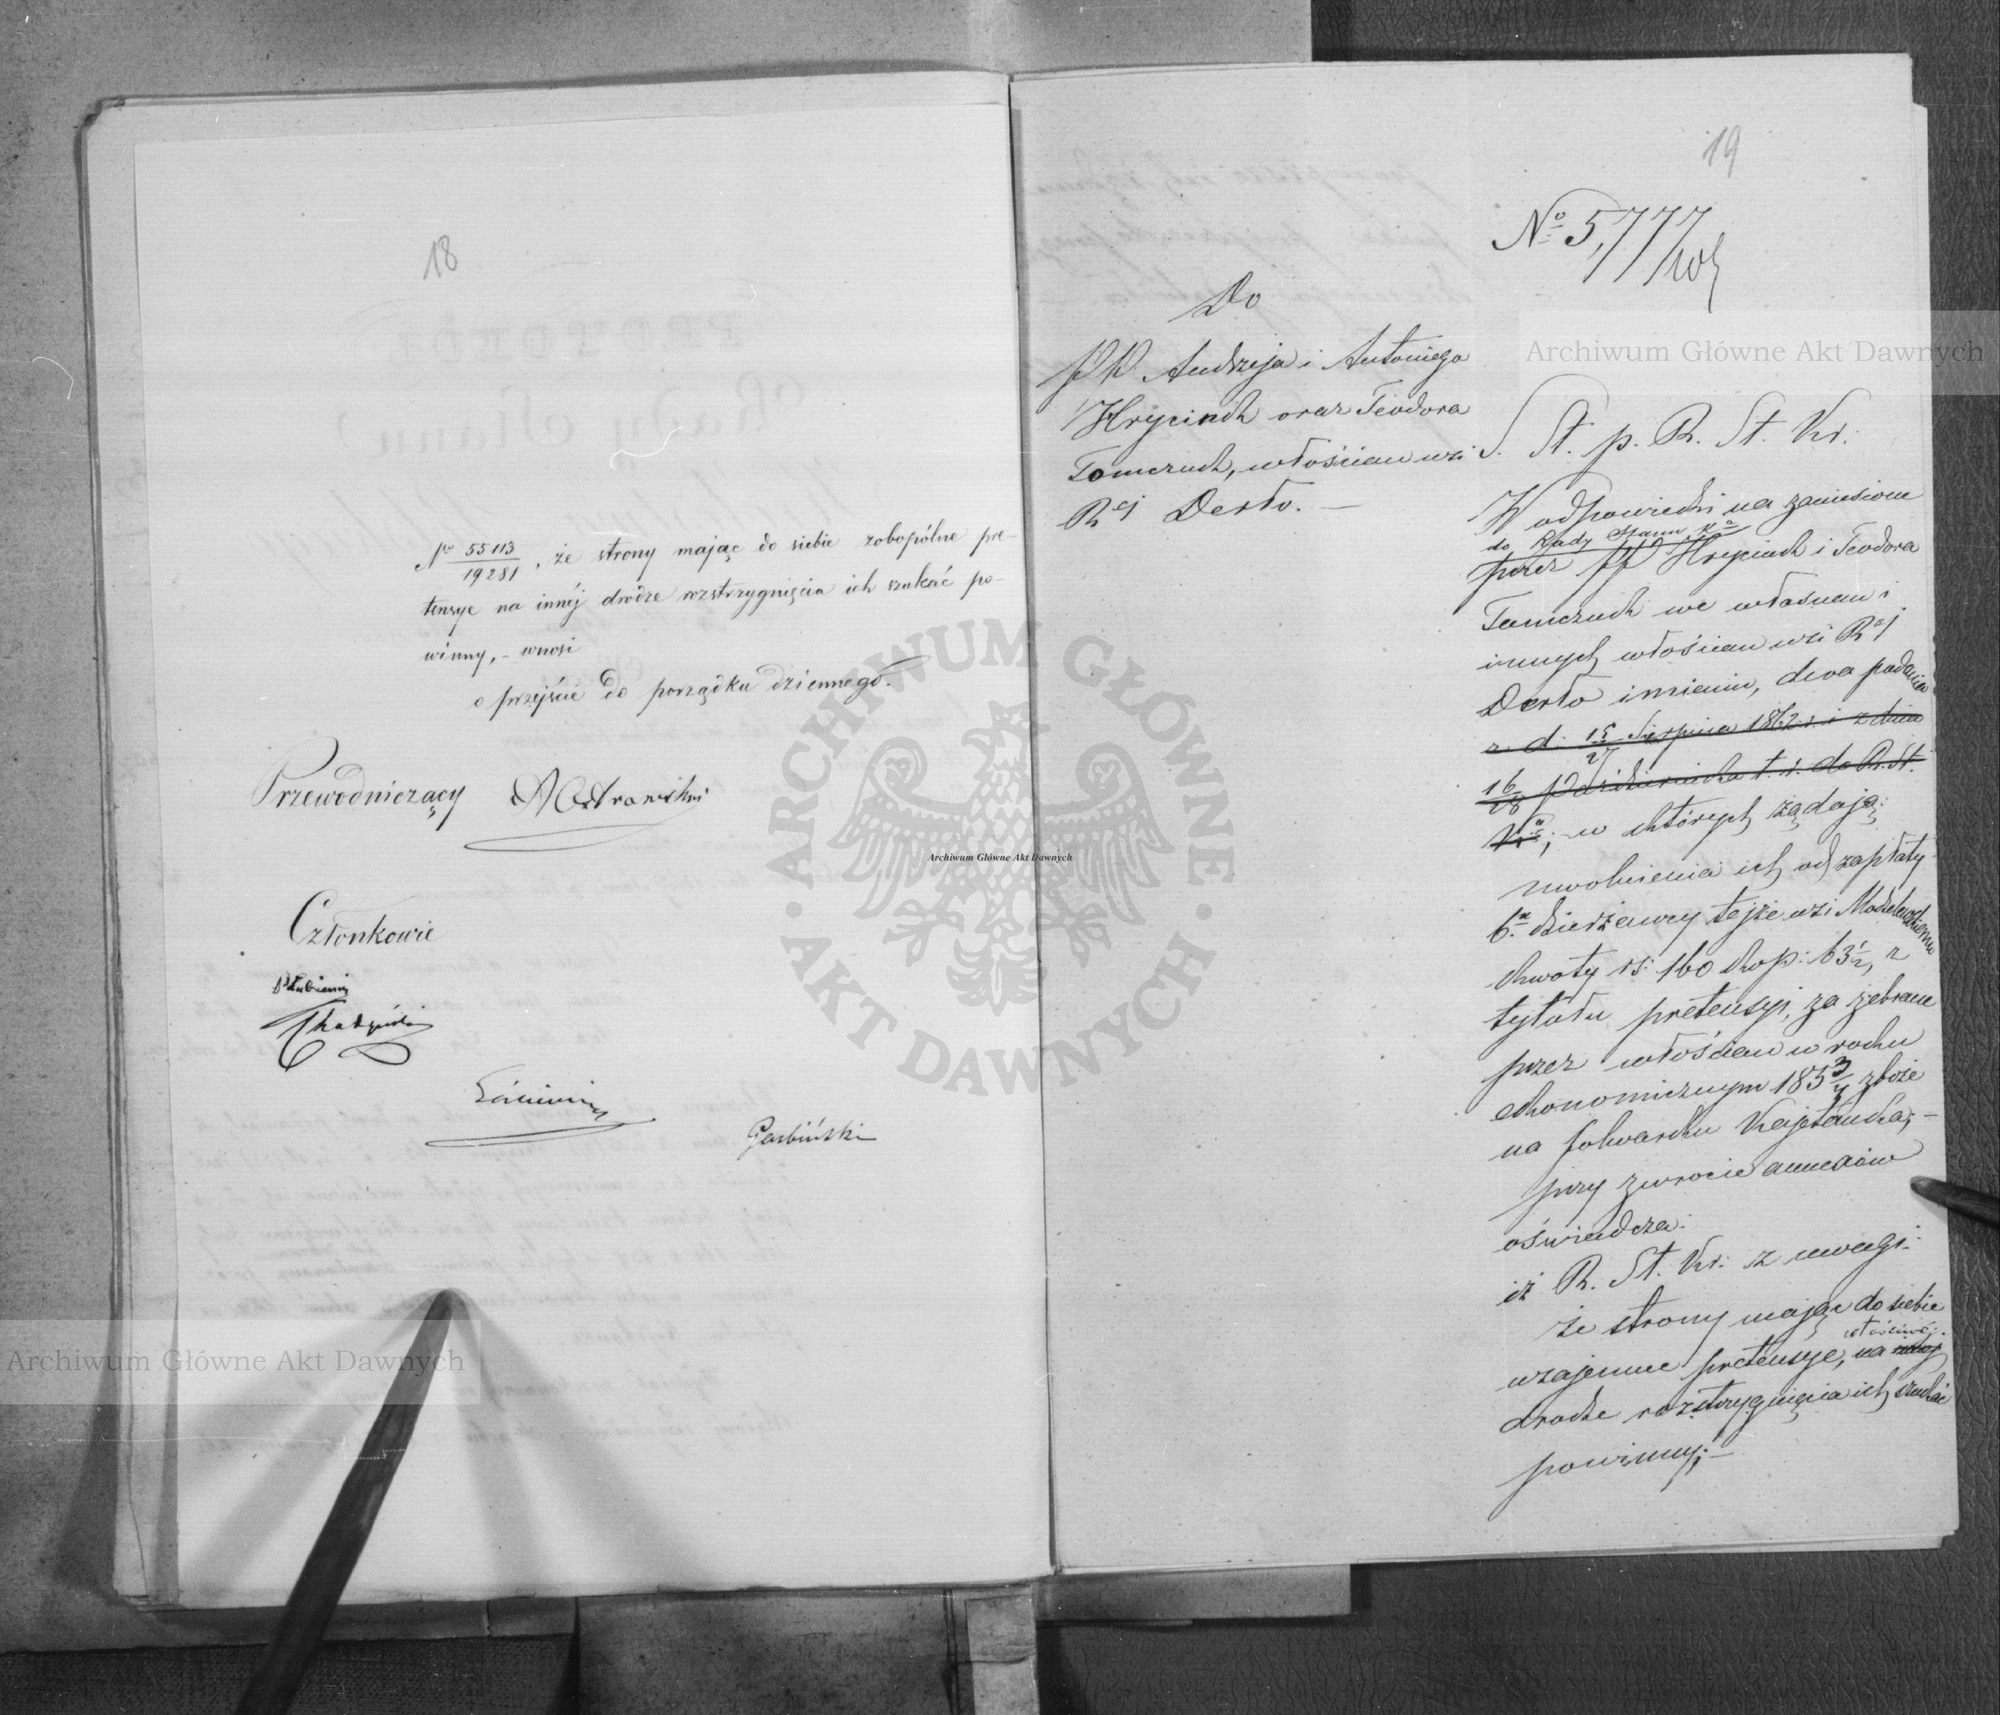 18
No 55113/19281, że strony mając do siebie zobopólne pre-
tensye na innéj drodze rozstrzygnięcia ich szukać po-
winny, - wnosi
o przejście do porządku dziennego.
Przewodniczący AOstrowski
Członkowie
Garbiński
19
No 5,777
Do
PP. Andrzeja i Antoniego
Hryciuk oraz Teodora
Tomczuk, włościan wsi
Rej Derło. —
S. St. p. R. St. Kr.
W odpowiedzi na zaniesione
do Rady Stanu Ka
przez PP Hryciuk i Teodora
Tomczuk we własnem i
innych włościan wsi Rej
Derło imieniu, dwa podania
z d. 15/27 Sierpnia 1862 r. i z dnia
16/28 Października t. r. do R. St.
Ka; w których żądają:
uwolnienia ich od zapłaty
b. dzierżawcy tejże wsi
kwoty rs: 160 kop: 63½, z
tytułu pretensyi, za zebrane
przez włościan w roku
ekonomicznym 1853/4 zboże
na folwarku Kajetanka; -
przy zwrocie annexów
oświadcza:
iż R. St. Kr: z uwagi:
że strony mając do siebie
właściwéj
wzajemne pretensye, na innej
drodze rozstrzygnięcia ich szukać
powinny; —
Archiwum Główne Akt Dawnych
Archiwum Główne Akt Dawnych
Archiwum Główne Akt Dawnych
ARCHIWUM GŁÓWNE · AKT DAWNYCH ·